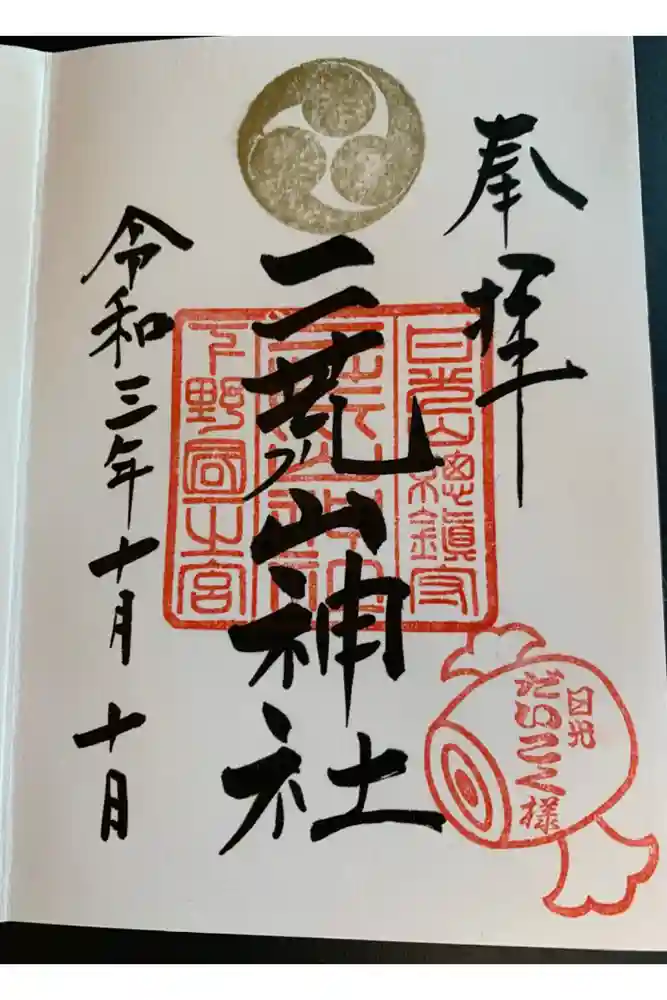 奉拝
日光山總鎮守
二荒山神社
下野國一之宮
令和三年十月十日
日光
だいこく様